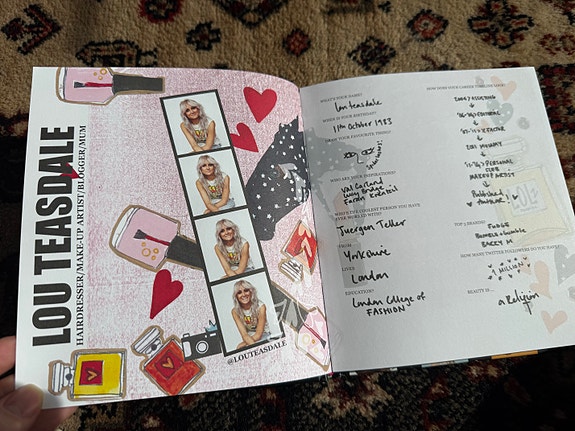 LOU TEASDALE
HAIRDRESSER/MAKE-UP ARTIST/BLOGGER/MUM
@LOUTEASDALE
WHAT'S YOUR NAME?
lou teasdale
WHEN IS YOUR BIRTHDAY?
11th October 1983
DRAW YOUR FAVOURITE THING!
WHO ARE YOUR INSPIRATIONS?
Val Garland
Farrah
WHO'S THE COOLEST PERSON YOU HAVE
EVER WORKED WITH?
Juergen Teller
FROM
Yorkshire
LIVES
London
EDUCATION?
London College of
FASHION
HOW DOES YOUR CAREER TIMELINE LOOK?
ASSISTING
EDITORIAL
X FACTOR
MUMMY
PERSONAL
MAKEUP ARTIST
Published
Author!
TOP 3 BRANDS?
FUDGE
Bumble & bumble
BARRY M
HOW MANY TWITTER FOLLOWERS DO YOU HAVE?
1 MILLION
BEAUTY IS ...
a Religion